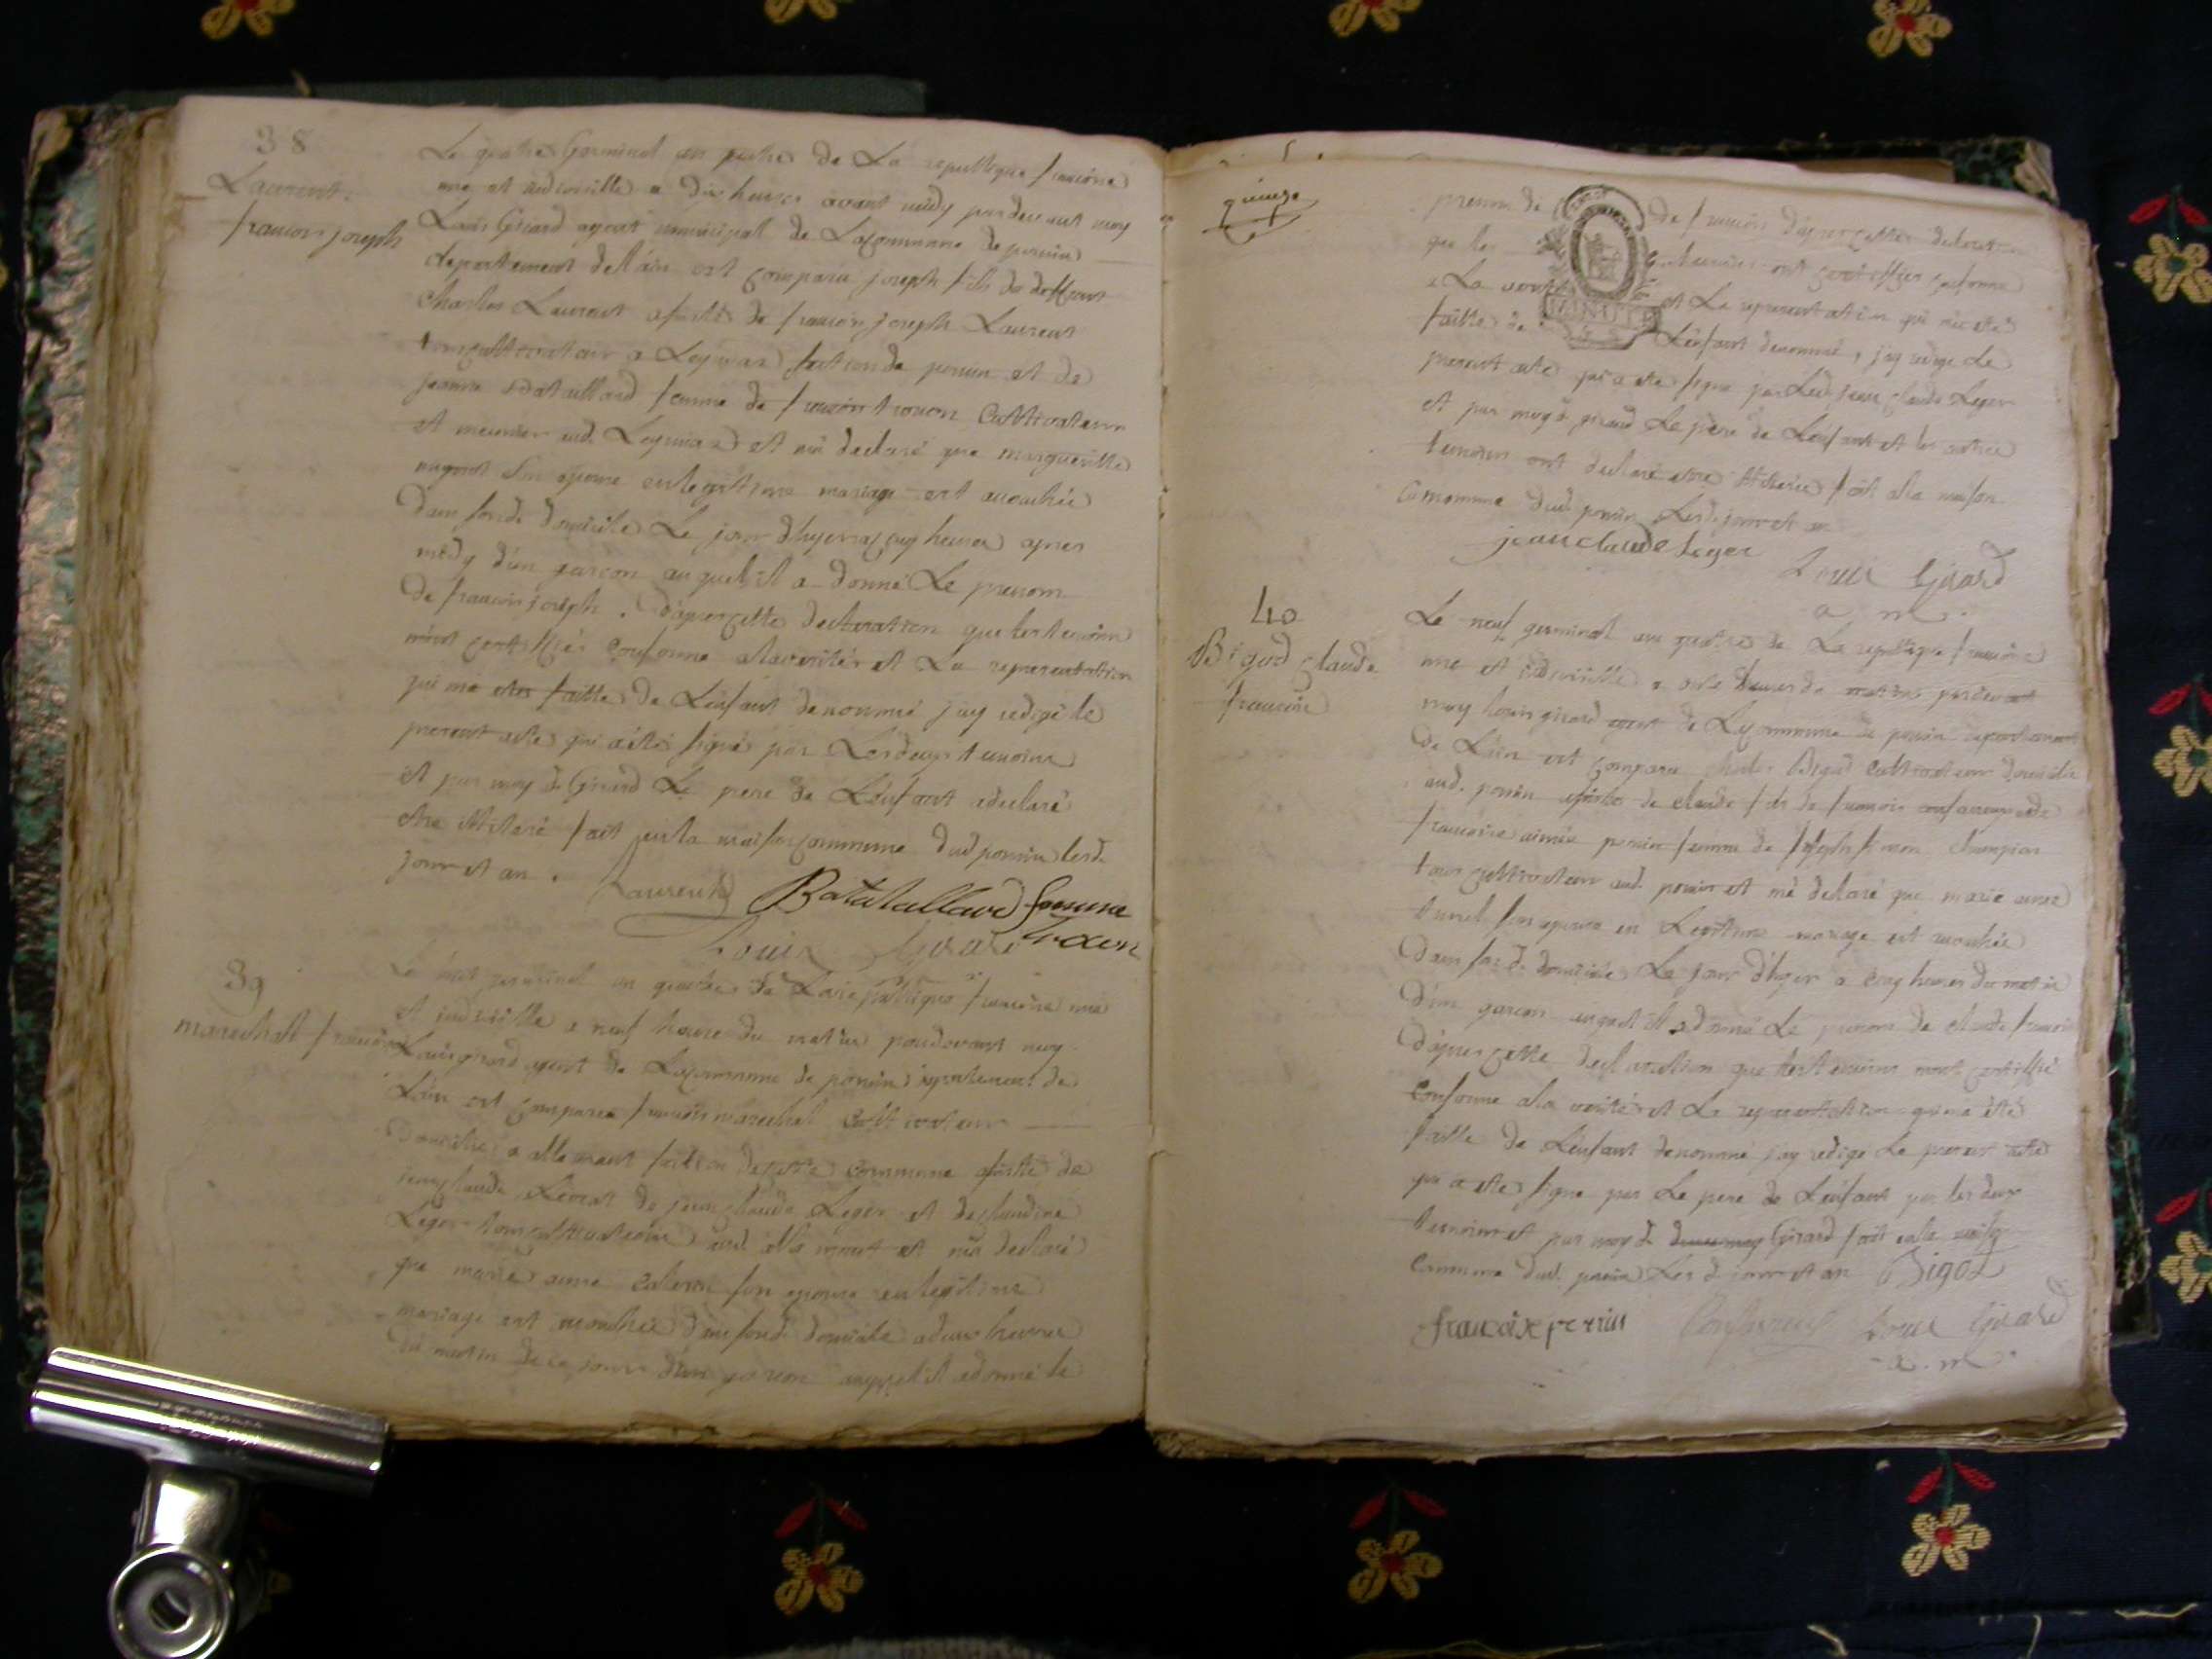 38
Laurent
francois joseph
Le quatre Germinal an quatre de La republique francoise
une et indivisible a dix heures avant midy pardevant moy
Louis Girard agent municipal de La commune de poncin
departement de l'ain est comparu joseph fils de deffunt
Charles Laurent assisté de francois joseph Laurent
cultivateur a Leymiaz section de poncin et de
jeanne Bataillard femme de francois troson Cultivateur
et meunier aud. Leymiaz et m'a declaré que margueritte
son epouse en legitime mariage est accouchée
Dans son d. domicile Le jour d'hyer a cinq heures apres
midy d'un garcon auquel il a donné Le prenom
De francois joseph . D'apres cette declaration que les temoins
m'ont certiffiés conforme a la verité et La representation
qui m'a été faitte de L'enfant denommé j'ay redigé le
present acte qui a été signé par Les deux temoins
et par moy d. Girard Le pere de L'enfant a declaré
etre illiteré fait en la maison commune dud poncin lesd.
jour et an .
Laurent Batatallard femme
Louis Girard
39
marechall francois
Le huit germinal an quatre de La republique francoise une
et indivisible a neuf heure du matin pardevant moy
Louis girard agent de La commune de poncin departement de
L'ain est comparu francois marechal cultivateur
Domicilié a allement section de cette commune assisté de
jean claude de jean claude Leger et de claudine
Leger tous cultivateurs aud allement et m'a declaré
que marie anne son epouse en legitime
mariage est accouchée dans son d. domicile a deux heures
du matin de ce jour d'un garcon auquel il a donné le
quinze
prenom de de francois d'apres cette declaration
que les temoins ont certiffier conforme
a La verité et La representation qui m'a eté
faitte de L'enfant denommé, j'ay redigé Le
present acte qui a eté signé par Led. jean claude Leger
et par moy d. girard Le pere de L'enfant et les autres
temoins ont declaré etre illiteré fait a la maison
Commune dud. poncin Lesd. jour et an
jean claude leger
Louis Girard
a m.
MINUTE
40
Bigod claude
francois
Le neuf germinal an quatre de La republique francoise
une et indivisible a heures de matin pardevant
moy Louis girard agent de La commune de poncin departement
De L'ain est comparu Bigod Cultivateur domicilié
aud. poncin assisté de claude fils de francois et de
francoise aimée perrin femme de
tous cultivateurs aud. poncin et m'a declaré que marie anne
son epouse en Legitime mariage est accouchée
Dans son d. domicile Le jour d'hyer a cinq heures du matin
D'un garcon auquel il a donné Le prenom de claude francois
D'apres cette declaration que les temoins m'ont certiffié
conforme a la verité et La representation qui m'a été
faitte de L'enfant denommé j'ay redigé Le present acte
qui a eté signé par Le pere de L'enfant par les deux
temoins et par moy d. Girard fait en la maison
Commune dud. poncin Les d. jour et an Bigod
francoise perrin Louis Girard
a . m .